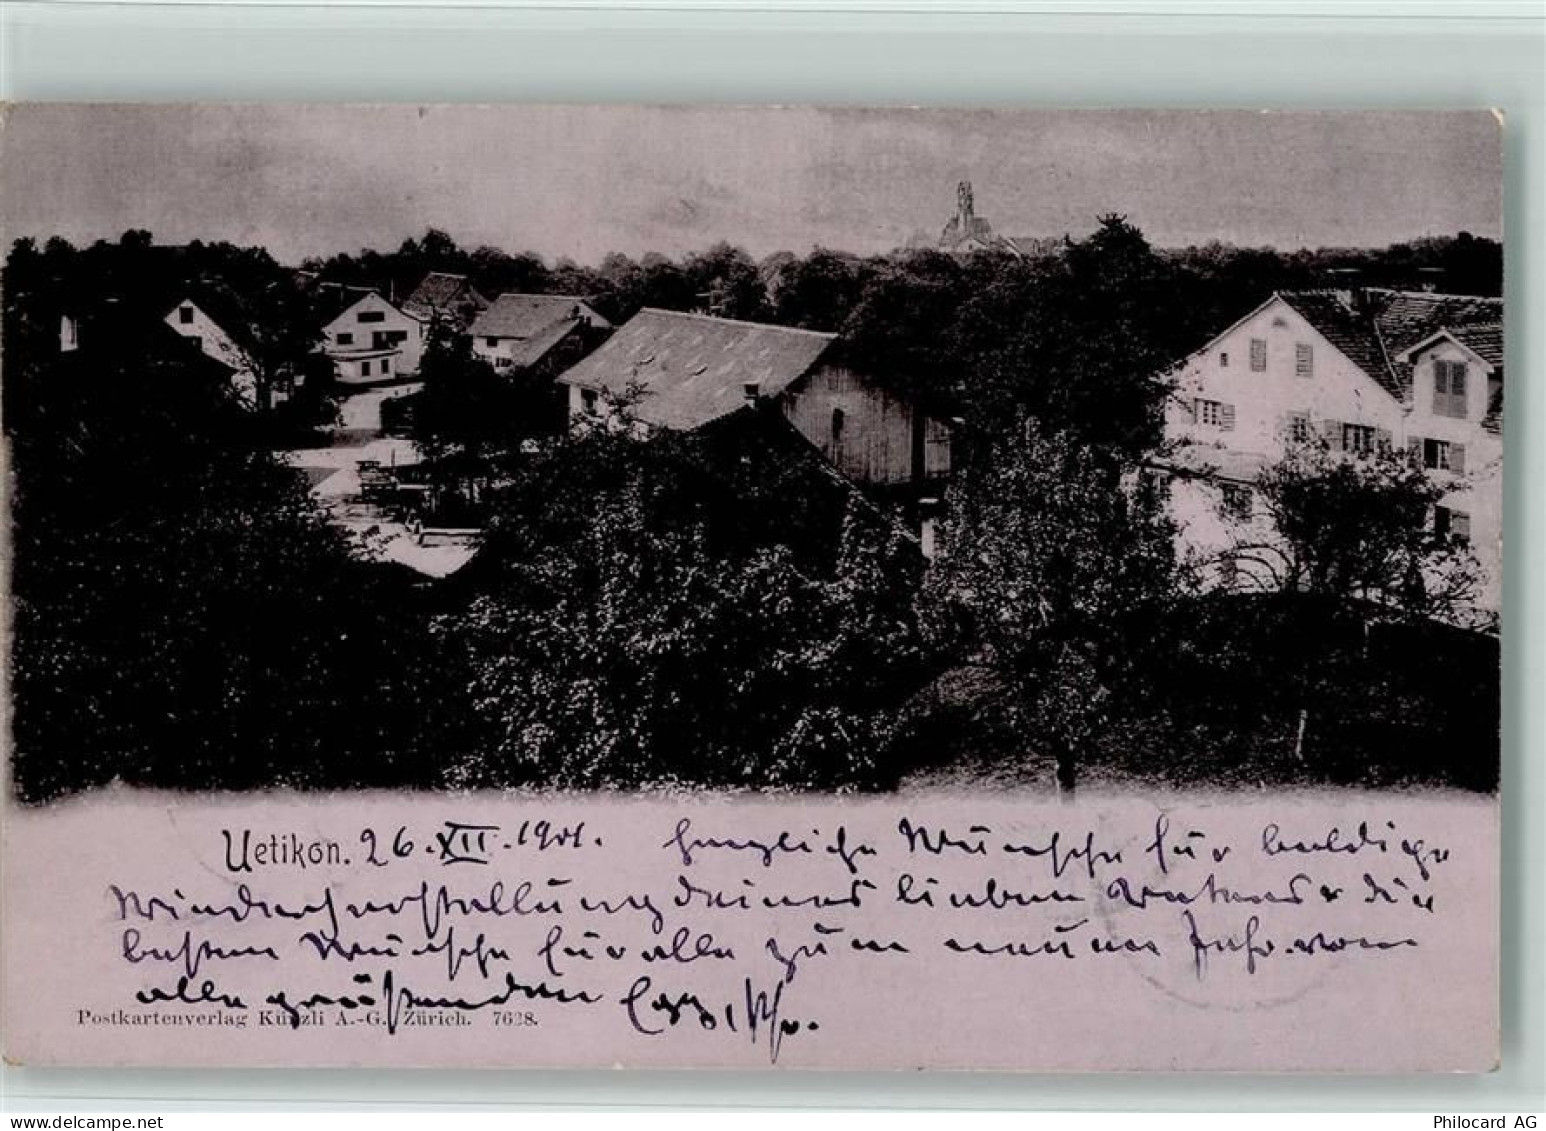 Uetikon. 26. XII. 1901. Herzliche Wünsche für baldige
Wiederherstellung deines lieben Vaters & die
besten Wünsche für alle zum neuen Jahr von
alle grüßenden
Postkartenverlag Künzli A.-G. Zürich. 7628.
delcampe.net
Philocard AG